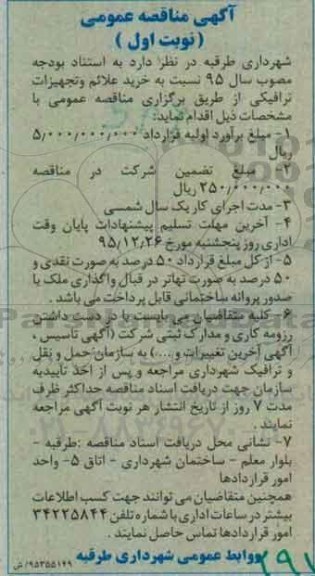 آگهی مناقصه عمومی
(نوبت اول)
شهرداری طرقبه در نظر دارد به استناد بودجه
مصوب سال ۹۵ نسبت به خرید علائم وتجهیزات
ترافیکی از طریق برگزاری مناقصه عمومی با
مشخصات ذیل اقدام نماید:
۱- مبلغ برآورد اولیه قرارداد ۵/۰۰۰/۰۰۰/۰۰۰
ریال
۲- مبلغ تضمین شرکت در مناقصه
۲۵۰/۰۰۰/۰۰۰ ریال
۳- مدت اجرای کار یک سال شمسی
۴- آخرین مهلت تسلیم پیشنهادات پایان وقت
اداری روز پنجشنبه مورخ ۹۵/۱۲/۲۶
۵- از کل مبلغ قرارداد ۵۰ درصد به صورت نقدی و
۵۰ درصد به صورت تهاتر در قبال واگذاری ملک یا
صدور پروانه ساختمانی قابل پرداخت می باشد.
۶- کلیه متقاضیان می بایست با در دست داشتن
رزومه کاری و مدارک ثبتی شرکت (آگهی تاسیس ،
آگهی آخرین تغییرات و ....) به سازمان حمل و نقل
و ترافیک شهرداری مراجعه و پس از اخذ تاییدیه
سازمان جهت دریافت اسناد مناقصه حداکثر ظرف
مدت ۷ روز از تاریخ انتشار هر نوبت آگهی مراجعه
نمایند.
۷- نشانی محل دریافت اسناد مناقصه :طرقبه -
بلوار معلم - ساختمان شهرداری - اتاق ۵- واحد
امور قراردادها
همچنین متقاضیان می توانند جهت کسب اطلاعات
بیشتر در ساعات اداری با شماره تلفن ۳۴۲۲۵۸۴۴
امور قراردادها تماس حاصل نمایند.
روابط عمومی شهرداری طرقبه
۹۵۳۵۵۱۴۹/ش